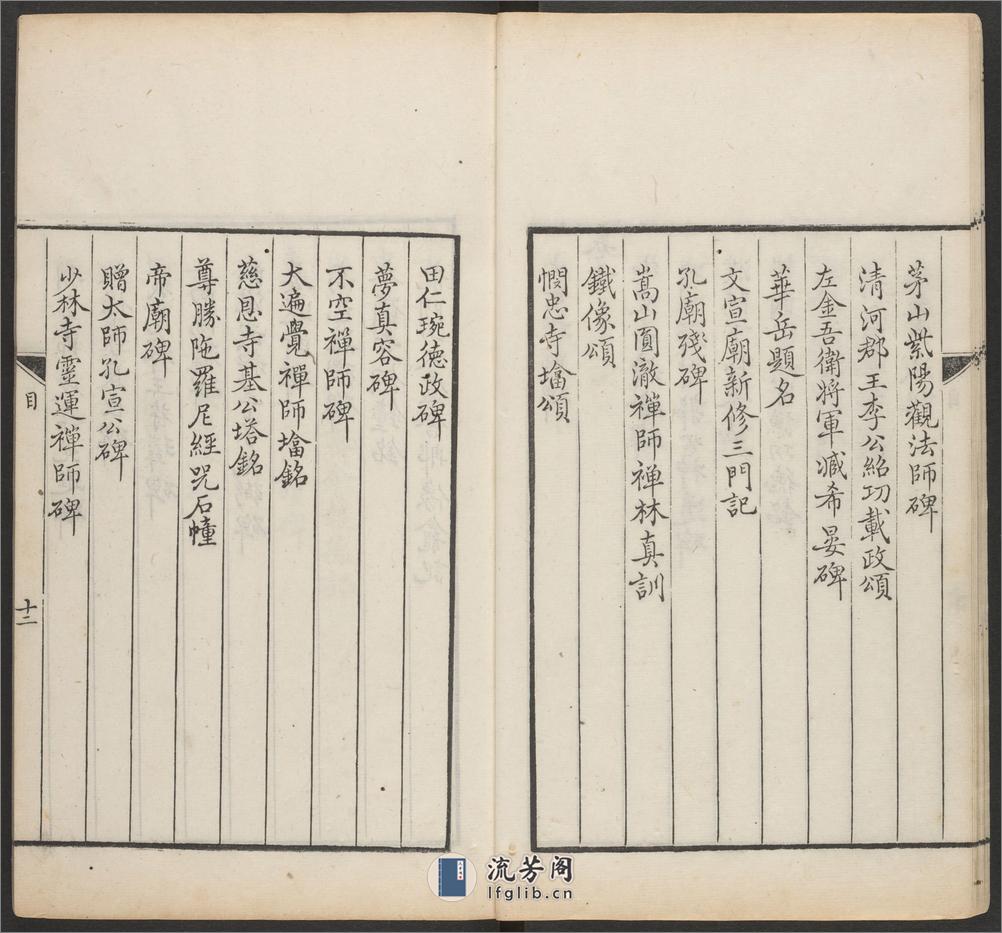 茅山紫陽觀法師碑
清河郡王李公紹功載政頌
左金吾衛將軍臧希晏碑
華岳題名
文宣廟新修三門記
孔廟殘碑
嵩山圓澈禪師禅林真訓
鐵像頌
憫忠寺墖頌
田仁琬德政碑
夢真容碑
不空禪師碑
大遍覺禪師墖銘
慈恩寺基公塔銘
尊勝陁羅尼經咒石幢
帝廟碑
贈太師孔宣公碑
少林寺靈運禪師碑
目
十二
流芳阁
lfglib.cn